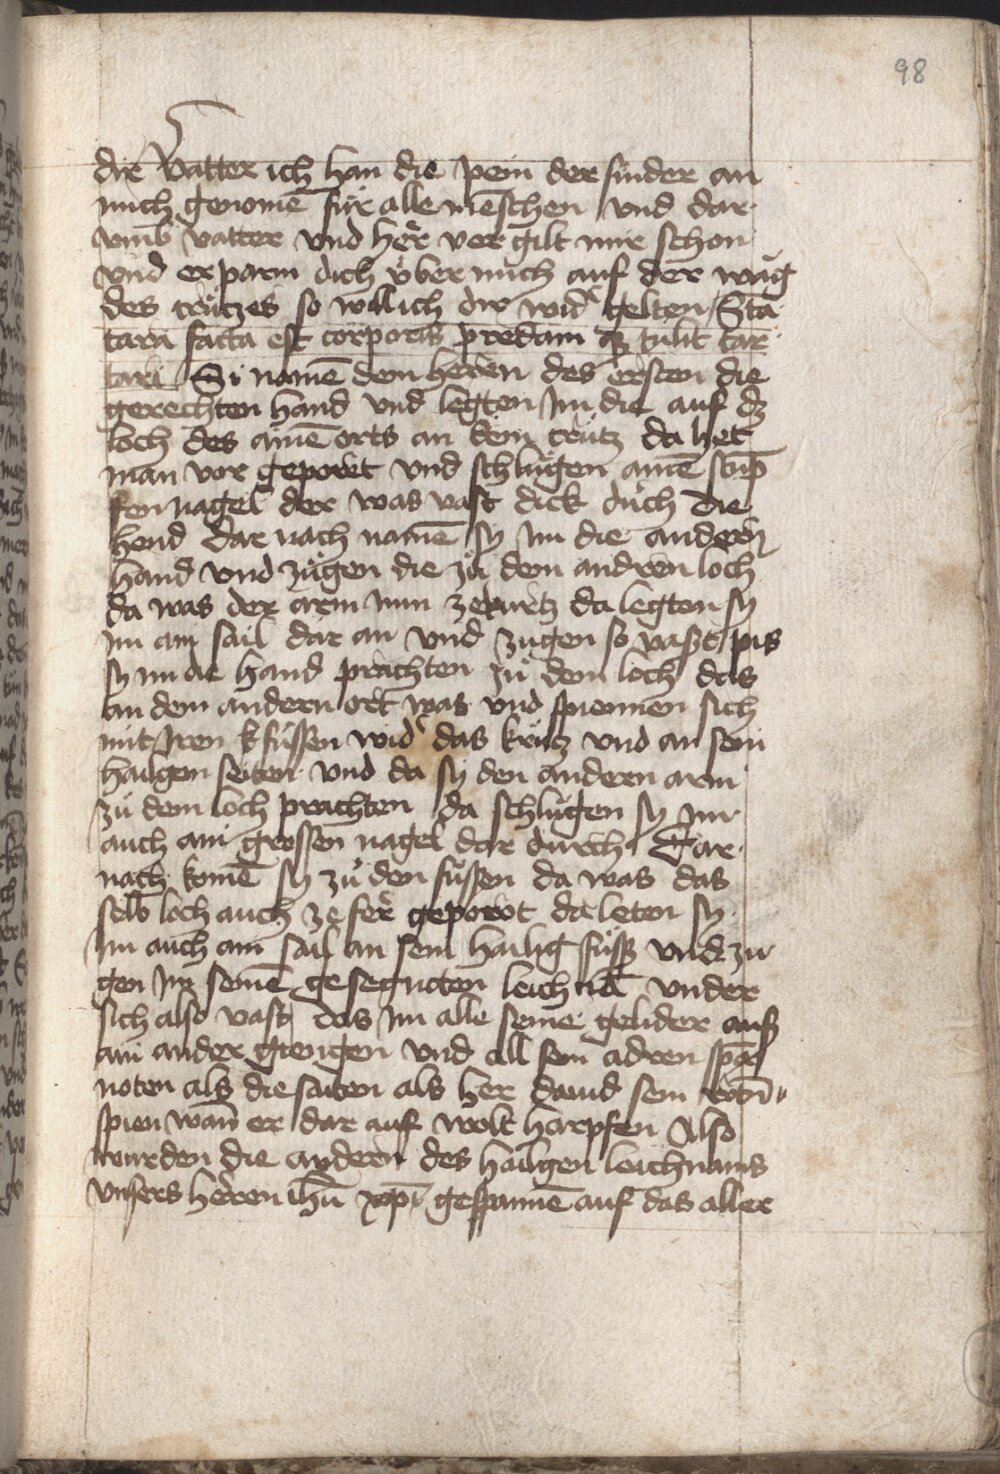 98
dir Vatter ich han die pein der sünder an
mich genomē für alle menschen vnd dar
vmb vatter vnd herr ver gilt mir schon
vnd er parm dich über mich auf der wag
des crützes so will ich dir wid' gelten Sta
tara facta est corporis predam qz tulit tar
tari Si namē dem heren des ersten die
gerechten hand vnd legten im die auf dz
loch des ainē orts an dem crütz da het
man vor geporet vnd schlugen ainē stup
fen nagel der was vast dick duch die
hend dar nach namē sy im die andern
hand vnd zügen die zů dem andren loch
da was der arm im ze kurtz da legten sy
im ain sail dar an vnd zugen so vast pis
sy im die hand prachten zů dem loch das
an dem andern ort was vnd spiennen sich
mit Iren füssen wid' das krütz vnd an sein
hailgen seiten vnd da sy den anderen arm
zů dem loch prachten da schlugen sy im
auch ain grossen nagel dar durch Dar
nach komē sy zů den füssen da was das
selb loch auch ze fer geporot da leten sy
Im auch ain sail an sein hailig füss vnd zu
gen im seinē gesegnoten leichnā vnder
sich also vast das im alle seine gelider auss
ain ander giengen vnd all sein adren span
noten als die saiten als her dauid sein
spien wan er dar auf wolt harpfen Also
wurden die andern des hailgen leichnams
vnsers heren ihū xpi gespannē auf das aller